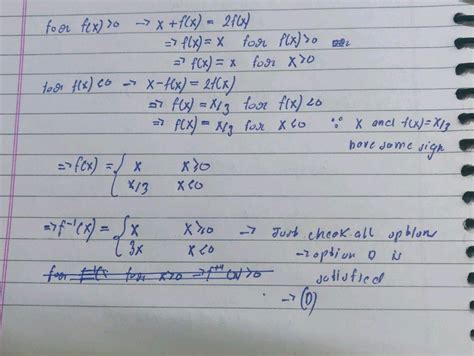 for f(x)>0 → x + f(x) = 2f(x)
⇒ f(x) = x for f(x)>0
⇒ f(x) = x for x>0
for f(x)<0 → x - f(x) = 2f(x)
⇒ f(x) = x/3 for f(x)<0
⇒ f(x) = x/3 for x<0 ∵ x and f(x)=x/3
have same sign
⇒ f(x) = { x x≥0
x/3 x<0
⇒ f⁻¹(x) = { x x≥0 → Just check all options
3x x<0 → option D is
satisfied
→ (D)